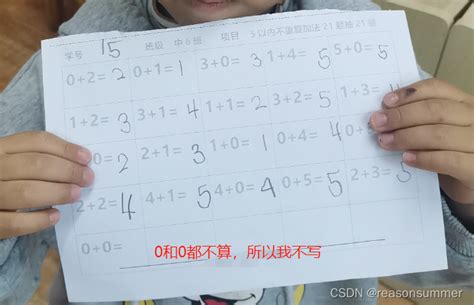 学号 15 班级 中6班 项目 5以内不重复加法21题抽21题
0+2=2 0+1=1 3+0=3 1+4=5 5+0=5
1+2=3 3+1=4 1+1=2 3+2=5 1+3=
0=2 2+1=3 1+0=1 0+4=4 0+
2+2=4 4+1=5 4+0=4 0+5=5 2+3=5
0+0=
0和0都不算，所以我不写
CSDN @reasonsummer